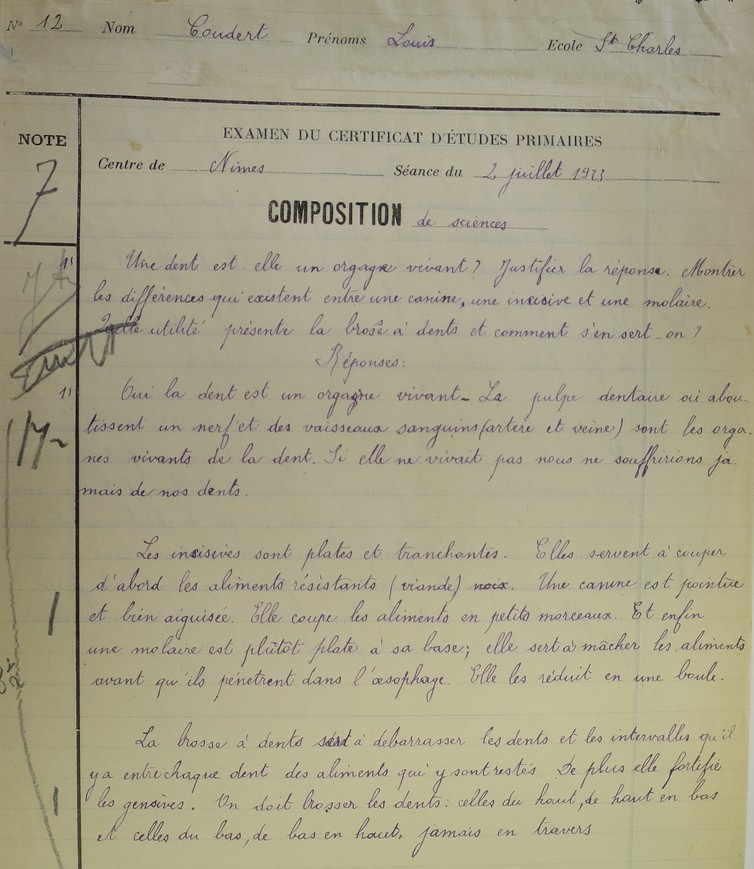 N° 12 Nom Coudert Prénoms Louis Ecole St Charles
NOTE
7
EXAMEN DU CERTIFICAT D'ÉTUDES PRIMAIRES
Centre de Nimes Séance du 2 juillet 1923
COMPOSITION de sciences
Une dent est elle un orgagne vivant? Justifier la réponse. Montrer
les différences qui existent entre une canine, une incisive et une molaire.
Quelle utilité présente la brosse à dents et comment s'en sert-on?
Réponses:
Oui la dent est un orgagne vivant_ La pulpe dentaire où abou-
tissent un nerf et des vaisseaux sanguins (artère et veine) sont les orga-
nes vivants de la dent. Si elle ne vivait pas nous ne souffririons ja-
mais de nos dents.
Les incisives sont plates et tranchantes. Elles servent à couper
d'abord les aliments résistants (viande) noix. Une canine est pointue
et bien aiguisée. Elle coupe les aliments en petits morceaux. Et enfin
une molaire est plûtôt plate à sa base; elle sert à mâcher les aliments
avant qu'ils pénètrent dans l'œsophage. Elle les réduit en une boule.
La brosse à dents sert à débarrasser les dents et les intervalles qu'il
y a entre chaque dent des aliments qui y sont restés. De plus elle fortifie
les gensives. On doit brosser les dents: celles du haut, de haut en bas
et celles du bas, de bas en haut, jamais en travers